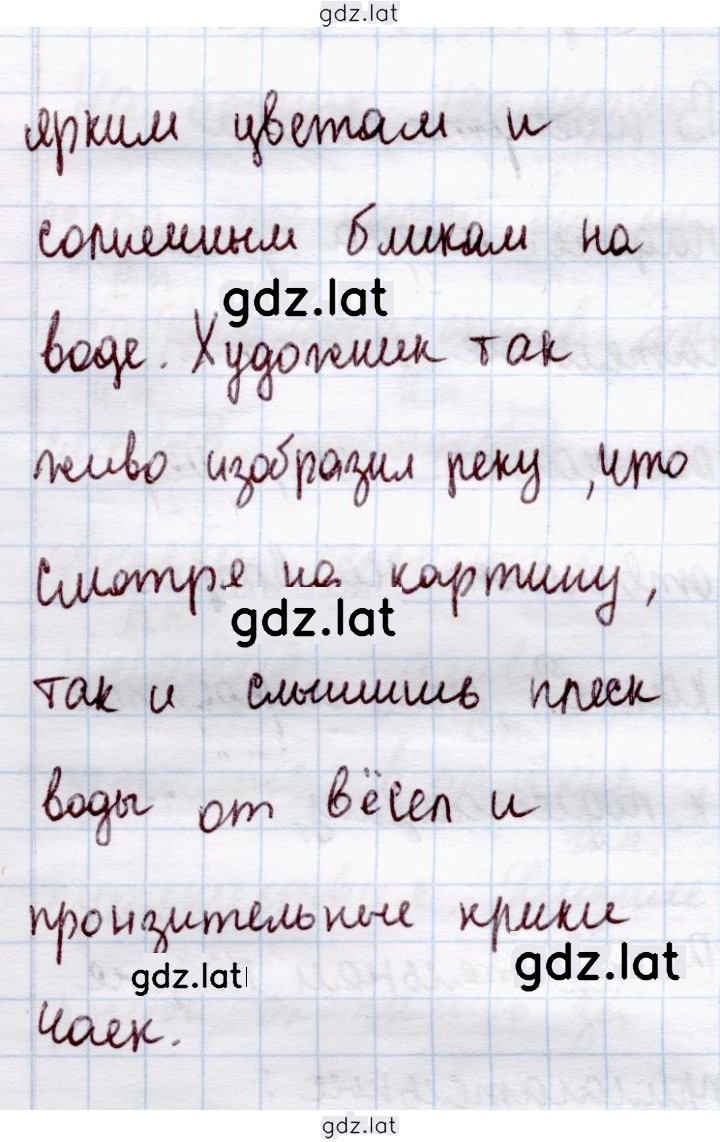 gdz.lat
ярким цветам и
солнечным бликам на
gdz.lat
воде. Художник так
живо изобразил реку, что
смотря на картину,
gdz.lat
так и слышишь плеск
воды от вёсел и
пронзительные крики
gdz.lat gdz.lat
чаек.
gdz.lat